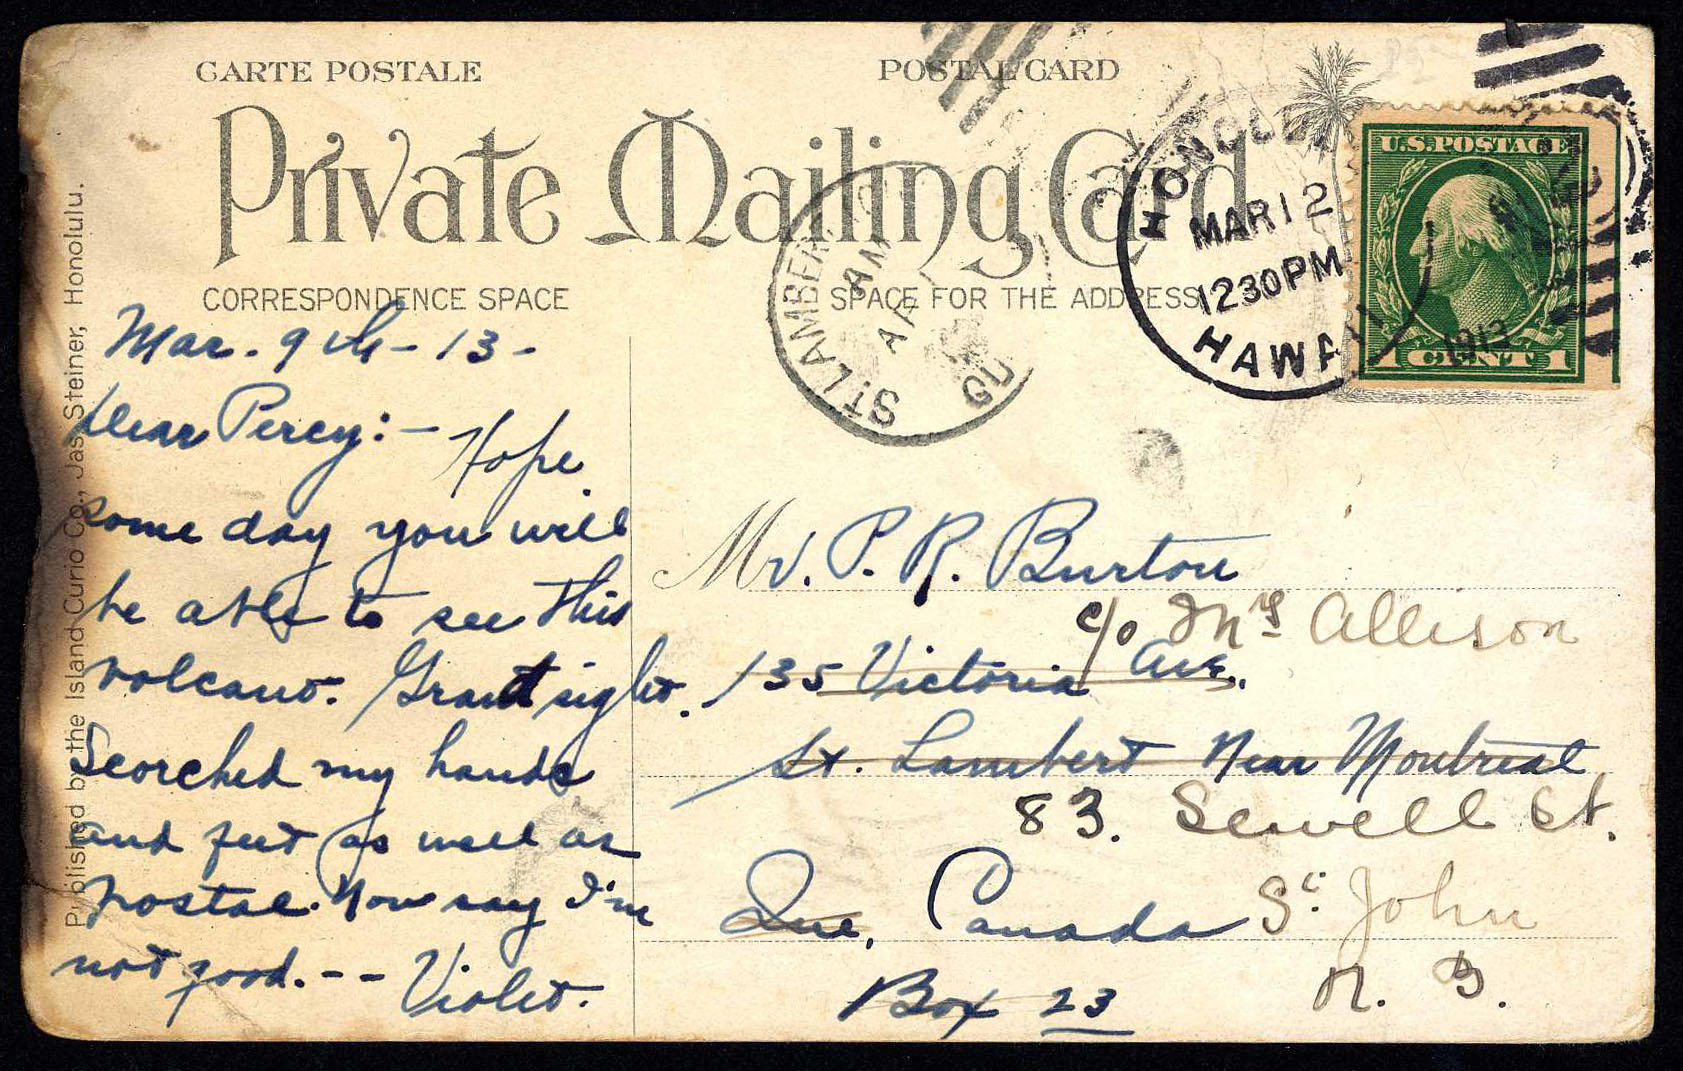 CARTE POSTALE
POSTAL CARD
Private Mailing Card
CORRESPONDENCE SPACE
SPACE FOR THE ADDRESS
Published by the Island Curio Co., Jas. Steiner, Honolulu.
HONOLU
MAR 12
1230 PM
HAWAII
1913
U.S. POSTAGE
1 CENT 1
ST. LAMBER
AM
AP
Mar. 9th - 13 -
Dear Percy: - Hope
some day you will
be able to see this
volcano. Grand sight.
Scorched my hands
and feet as well as
postal. Now say I'm
not good. - - Violet.
Mr. P. R. Burton
c/o Mrs Allison
135 Victoria Ave.
St. Lambert Near Montreal
83. Sewell St.
Que, Canada St. John
N. B.
Box 23